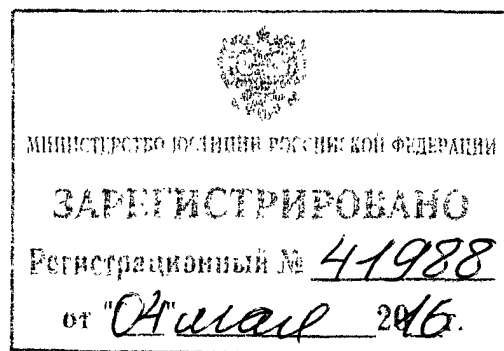 МИНИСТЕРСТВО ЮСТИЦИИ РОССИЙСКОЙ ФЕДЕРАЦИИ
ЗАРЕГИСТРИРОВАНО
Регистрационный № 41988
от "04" мая 2016г.